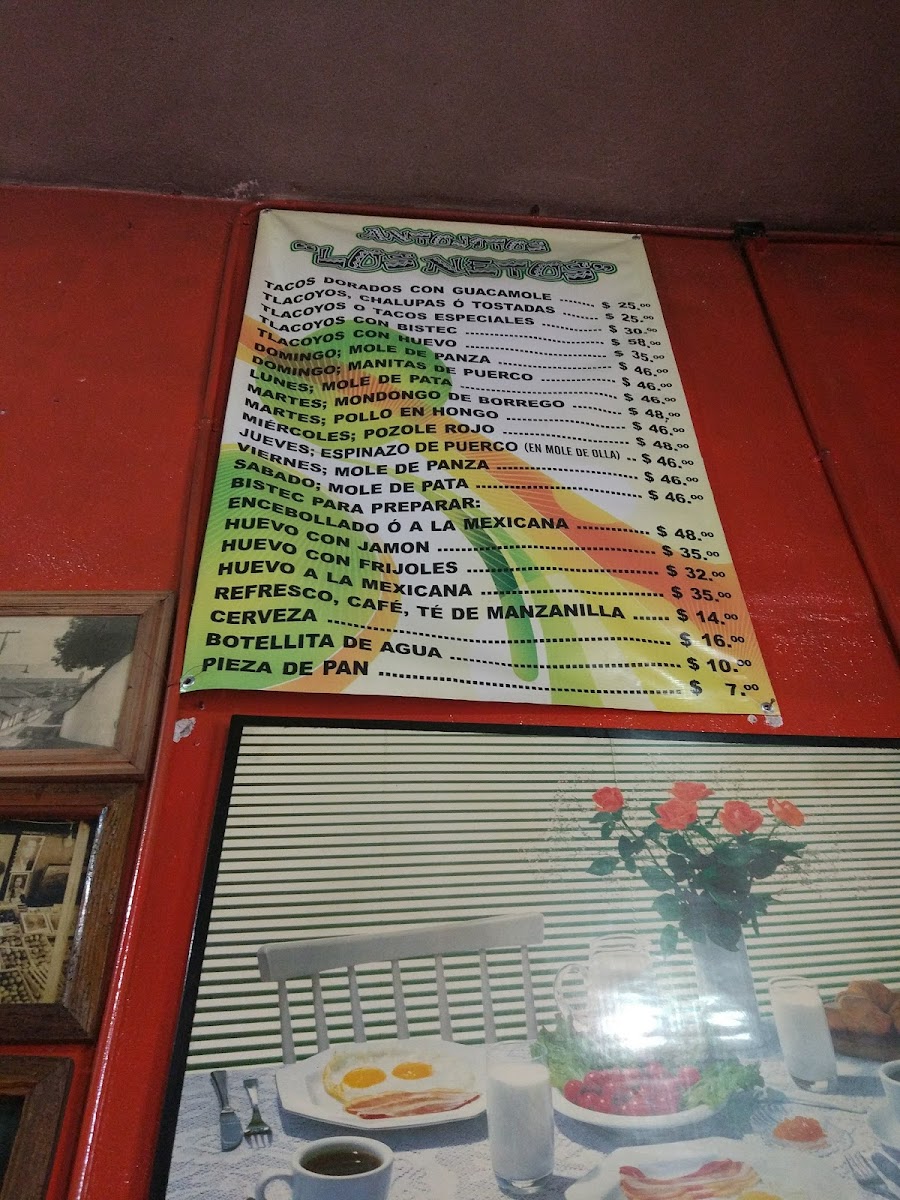 ANTOJITOS
"LOS NETOS"
TACOS DORADOS CON GUACAMOLE ........ $ 25.00
TLACOYOS, CHALUPAS Ó TOSTADAS ........ $ 25.00
TLACOYOS O TACOS ESPECIALES ........ $ 30.00
TLACOYOS CON BISTEC ........ $ 58.00
TLACOYOS CON HUEVO ........ $ 35.00
DOMINGO; MOLE DE PANZA ........ $ 46.00
DOMINGO; MANITAS DE PUERCO ........ $ 46.00
LUNES; MOLE DE PATA ........ $ 46.00
MARTES; MONDONGO DE BORREGO ........ $ 48.00
MARTES; POLLO EN HONGO ........ $ 46.00
MIÉRCOLES; POZOLE ROJO ........ $ 48.00
JUEVES; ESPINAZO DE PUERCO (EN MOLE DE OLLA) .. $ 46.00
VIERNES; MOLE DE PANZA ........ $ 46.00
SABADO; MOLE DE PATA ........ $ 46.00
BISTEC PARA PREPARAR:
ENCEBOLLADO Ó A LA MEXICANA ........ $ 48.00
HUEVO CON JAMON ........ $ 35.00
HUEVO CON FRIJOLES ........ $ 32.00
HUEVO A LA MEXICANA ........ $ 35.00
REFRESCO, CAFÉ, TÉ DE MANZANILLA ...... $ 14.00
CERVEZA ........ $ 16.00
BOTELLITA DE AGUA ........ $ 10.00
PIEZA DE PAN ........ $ 7.00